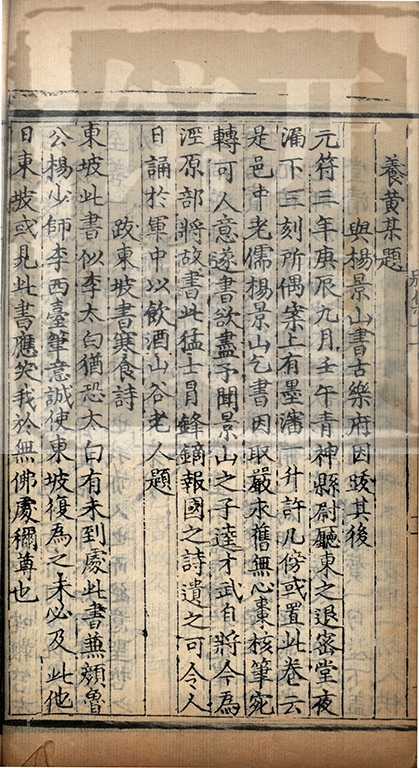 養黃某題
與楊景山書古樂府因跋其後
元符三年庚辰九月壬午青神縣尉廳東之退密堂夜
漏下三刻所偶案上有墨瀋一升許几傍或置此卷云
是邑中老儒楊景山乞書因取嚴永舊無心棗核筆宛
轉可人意遂書欲盡予聞景山之子逵才武自將今為
涇原部將故書此猛士冒鋒鏑報國之詩遺之可令人
日誦於軍中以飲酒山谷老人題
跋東坡書寒食詩
東坡此書似李太白猶恐太白有未到處此書兼顏魯
公楊少師李西臺筆意試使東坡復為之未必及此他
日東坡或見此書應笑我於無佛處稱尊也